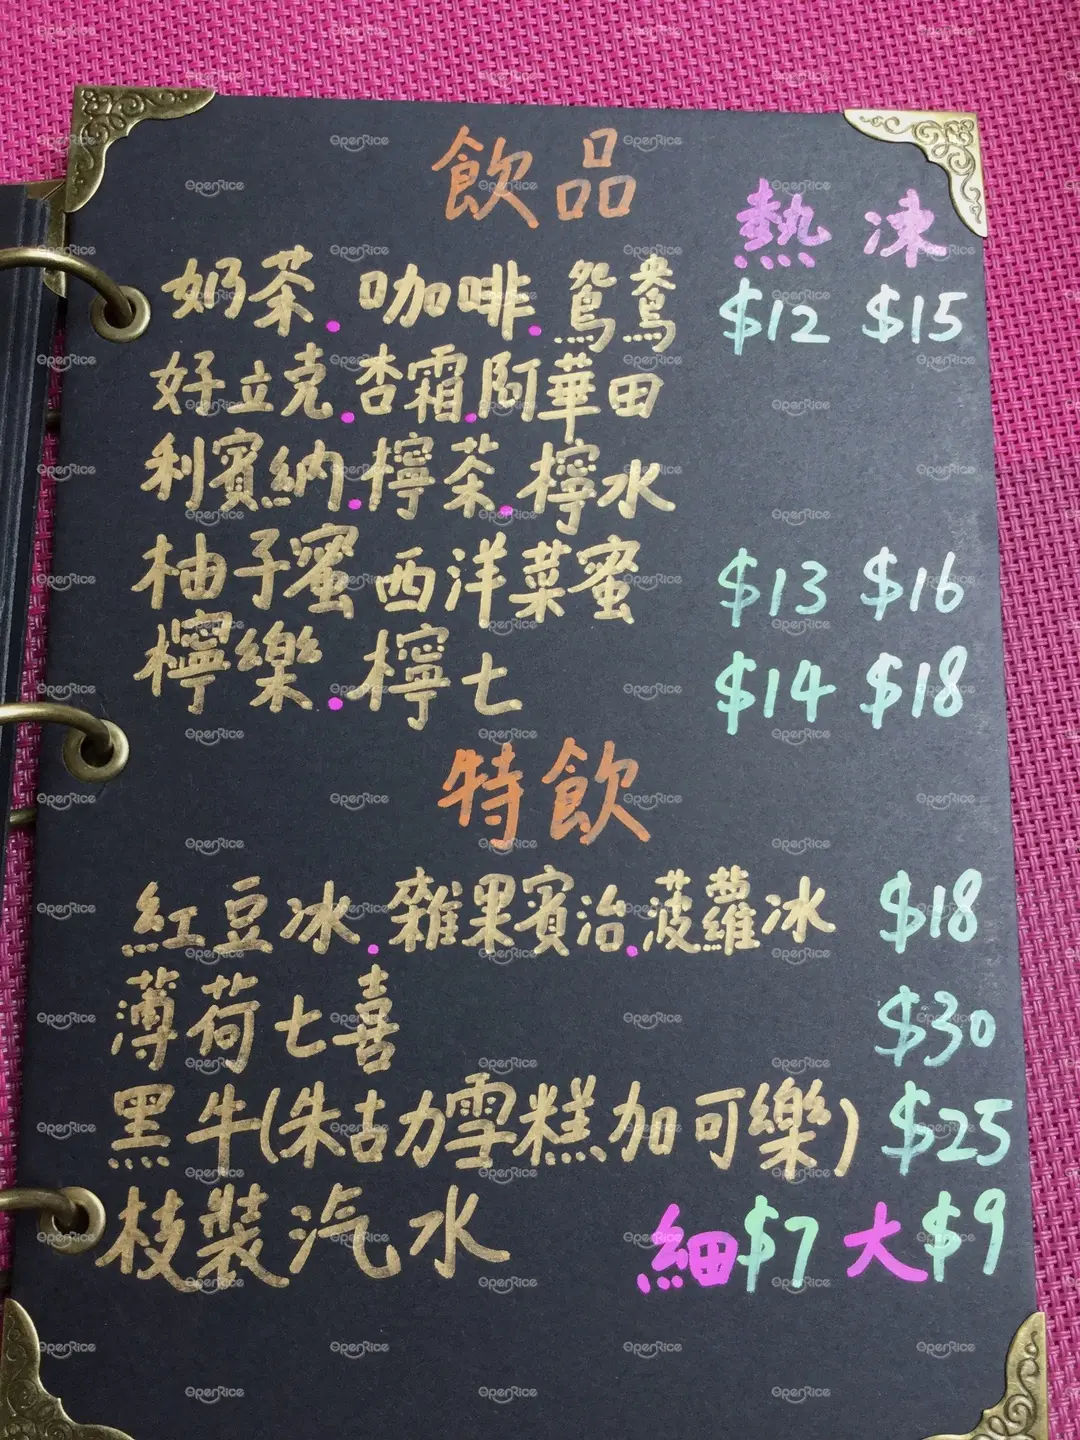 飲品
熱 凍
奶茶.咖啡.鴛鴦 $12 $15
好立克.杏霜.阿華田
利賓納.檸茶.檸水
柚子蜜 西洋菜蜜 $13 $16
檸樂.檸七 $14 $18
特飲
紅豆冰.雜果賓治.菠蘿冰 $18
薄荷七喜 $30
黑牛(朱古力雪糕加可樂) $25
枝裝汽水 細$7 大$9
OpenRice